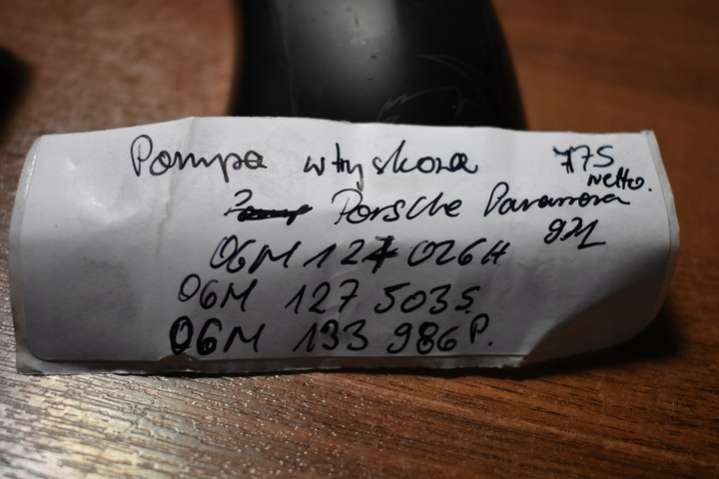 Pompa wtryskowa 775
netto.
Porsche Panamera
971
06M 127 026H
06M 127 503S
06M 133 986P.